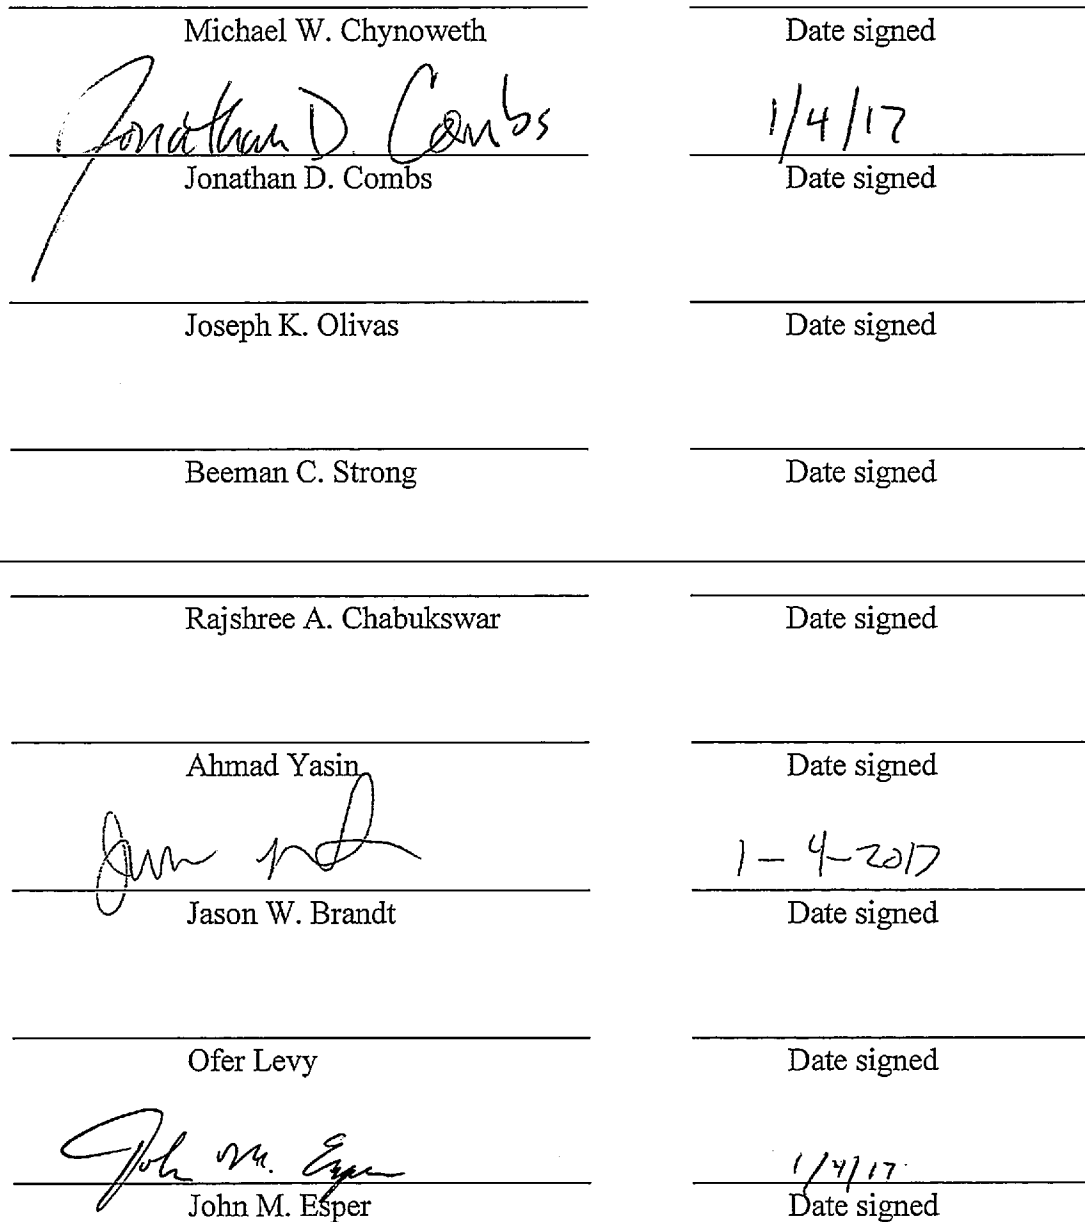 Michael W. Chynoweth Date signed
Jonathan D. Combs 1/4/17
Jonathan D. Combs Date signed
Joseph K. Olivas Date signed
Beeman C. Strong Date signed
Rajshree A. Chabukswar Date signed
Ahmad Yasin Date signed
1-4-2017
Jason W. Brandt Date signed
Ofer Levy Date signed
John M. Esper 1/4/17
John M. Esper Date signed